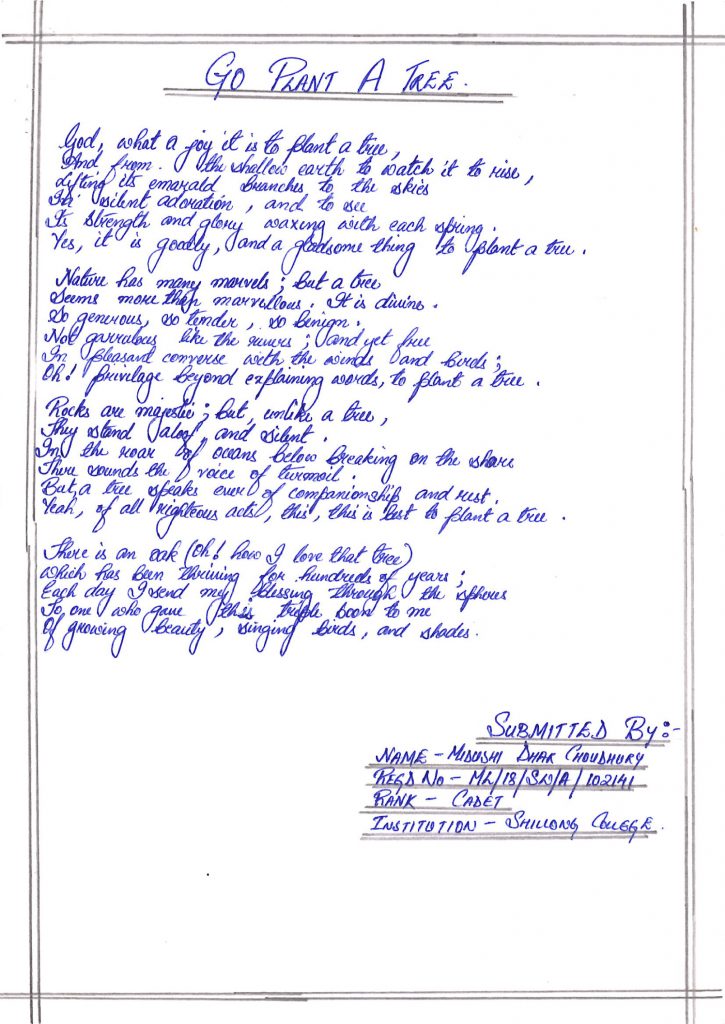 GO PLANT A TREE.
God, what a joy it is to plant a tree,
And from. the shallow earth to watch it to rise,
Lifting its emarald branches to the skies
In silent adoration, and to see
Its strength and glory waxing with each spring.
Yes, it is goodly, and a gladsome thing to plant a tree.
Nature has many marvels; but a tree
Seems more than marvellous. It is divine.
So generous, so tender, so benign.
Not garrulous like the rivers; and yet free
In pleasant converse with the winds and birds;
Oh! privilage beyond explaining words, to plant a tree.
Rocks are majestic; but, unlike a tree,
They stand aloof, and silent.
In the roar of oceans below breaking on the shore
There sounds the voice of turmoil.
But, a tree speaks ever of companionship and rest.
Yeah, of all righteous acts, this, this is best to plant a tree.
There is an oak (Oh! how I love that tree)
which has been thriving for hundreds of years;
Each day I send my blessing through the spheres
To, one who gave this triple boon to me
Of growing beauty, singing birds, and shades.
SUBMITTED BY:-
NAME - MIDUSHI DHAR CHOUDHURY
REGD NO - ML/18/SW/A/102141
RANK - CADET
INSTITUTION - SHILLONG COLLEGE.